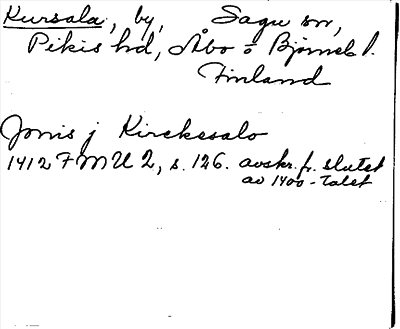 Kursala, by, Sagu sn,
Pikis hd, Åbo o Bjørneb l.
Finland
Jonis j Kirckesalo
1412 FMU 2, s. 126. avskr. fr. slutet
av 1400-talet